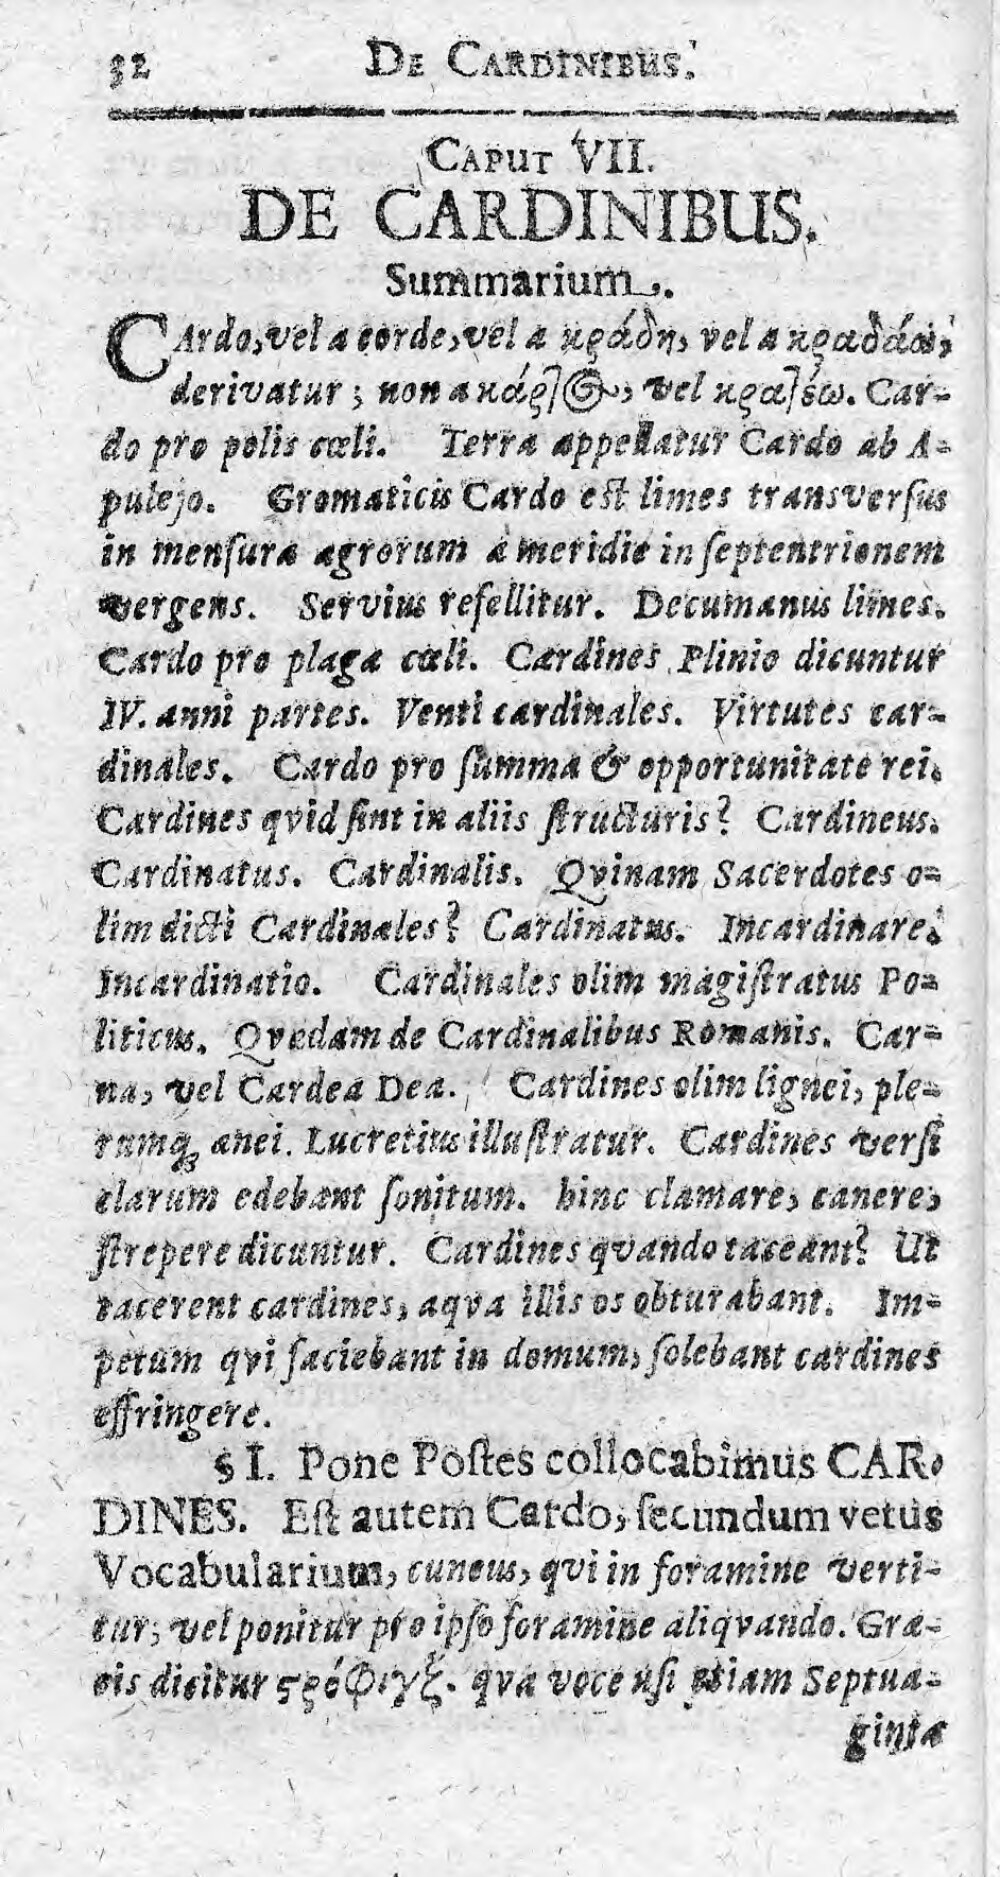 32 DE CARDINIBUS.
CAPUT VII.
DE CARDINIBUS.
Summarium.
CArdo, vel a corde, vel a κράδη, vel a κραδάω,
derivatur; non a κάρτος, vel κρατέω. Car-
do pro polis cœli. Terra appellatur Cardo ab A-
pulejo. Gromaticis Cardo est limes transverſus
in menſura agrorum a meridie in ſeptentrionem
vergens. Servius refellitur. Decumanus limes.
Cardo pro plaga cœli. Cardines Plinio dicuntur
IV. anni partes. Venti cardinales. Virtutes car-
dinales. Cardo pro ſumma & opportunitate rei.
Cardines qvid ſint in aliis ſtructuris? Cardineus.
Cardinatus. Cardinalis. Qvinam Sacerdotes o-
lim dicti Cardinales? Cardinatus. Incardinare.
Incardinatio. Cardinales olim magiſtratus Po-
liticus. Qvædam de Cardinalibus Romanis. Car-
na, vel Cardea Dea. Cardines olim lignei, ple-
rumq; ænei. Lucretius illuſtratur. Cardines verſi
clarum edebant ſonitum. hinc clamare, canere,
ſtrepere dicuntur. Cardines qvando taceant? Ut
tacerent cardines, aqva illis os obturabant. Im-
petum qvi faciebant in domum, ſolebant cardines
effringere.
§ I. Pone Poſtes collocabimus CAR-
DINES. Eſt autem Cardo, ſecundum vetus
Vocabularium, cuneus, qvi in foramine verti-
tur; vel ponitur pro ipſo foramine aliqvando. Græ-
cis dicitur ϛρόφιγξ. qva voce uſi etiam Septua-
ginta